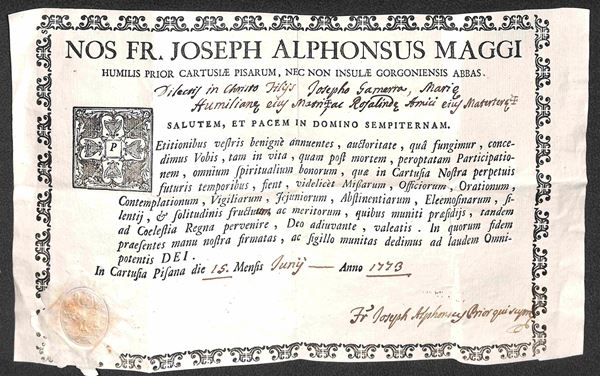 NOS FR. JOSEPH ALPHONSUS MAGGI
HUMILIS PRIOR CARTUSIÆ PISARUM, NEC NON INSULÆ GORGONIENSIS ABBAS.
Dilectis in Christo Filijs Josepho Gamerra, Mariæ
Humilianæ ejus Matri, ac Rosalindæ Amici ejus Materteræ
SALUTEM, ET PACEM IN DOMINO SEMPITERNAM.
PEtitionibus vestris benignè annuentes, auctoritate, quâ fungimur, conce-
dimus Vobis, tam in vita, quam post mortem, peroptatam Participatio-
nem, omnium spiritualium bonorum, quæ in Cartusia Nostra perpetuis
futuris temporibus, fient, videlicèt Missarum, Officiorum, Orationum,
Contemplationum, Vigiliarum, Jejuniorum, Abstinentiarum, Eleemosinarum, si-
lentij, & solitudinis fructuum, ac meritorum, quibus muniti præsidijs, tandem
ad Coelestia Regna pervenire, Deo adiuvante, valeatis. In quorum fidem
praesentes manu nostra firmatas, ac sigillo munitas dedimus ad laudem Omni-
potentis DEI.
In Cartusia Pisana die 15. Mensis Junij Anno 1773
Fr. Joseph Alphonsus Prior qui supra